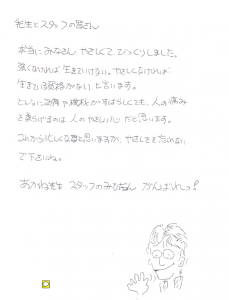 先生とスタッフの皆さん
本当にみなさん やさしくて びっくりしました。
強くなければ 生きていけない。やさしくなければ
生きている資格がない、と言います。
どんなに設備や機械がすばらしくても、人の痛み
を柔らげるのは 人のやさしい心 だと思います。
これから忙しくなると思いますが、やさしさを忘れない
で下さいね。
あかね先生 スタッフのみなさん がんばれっ!